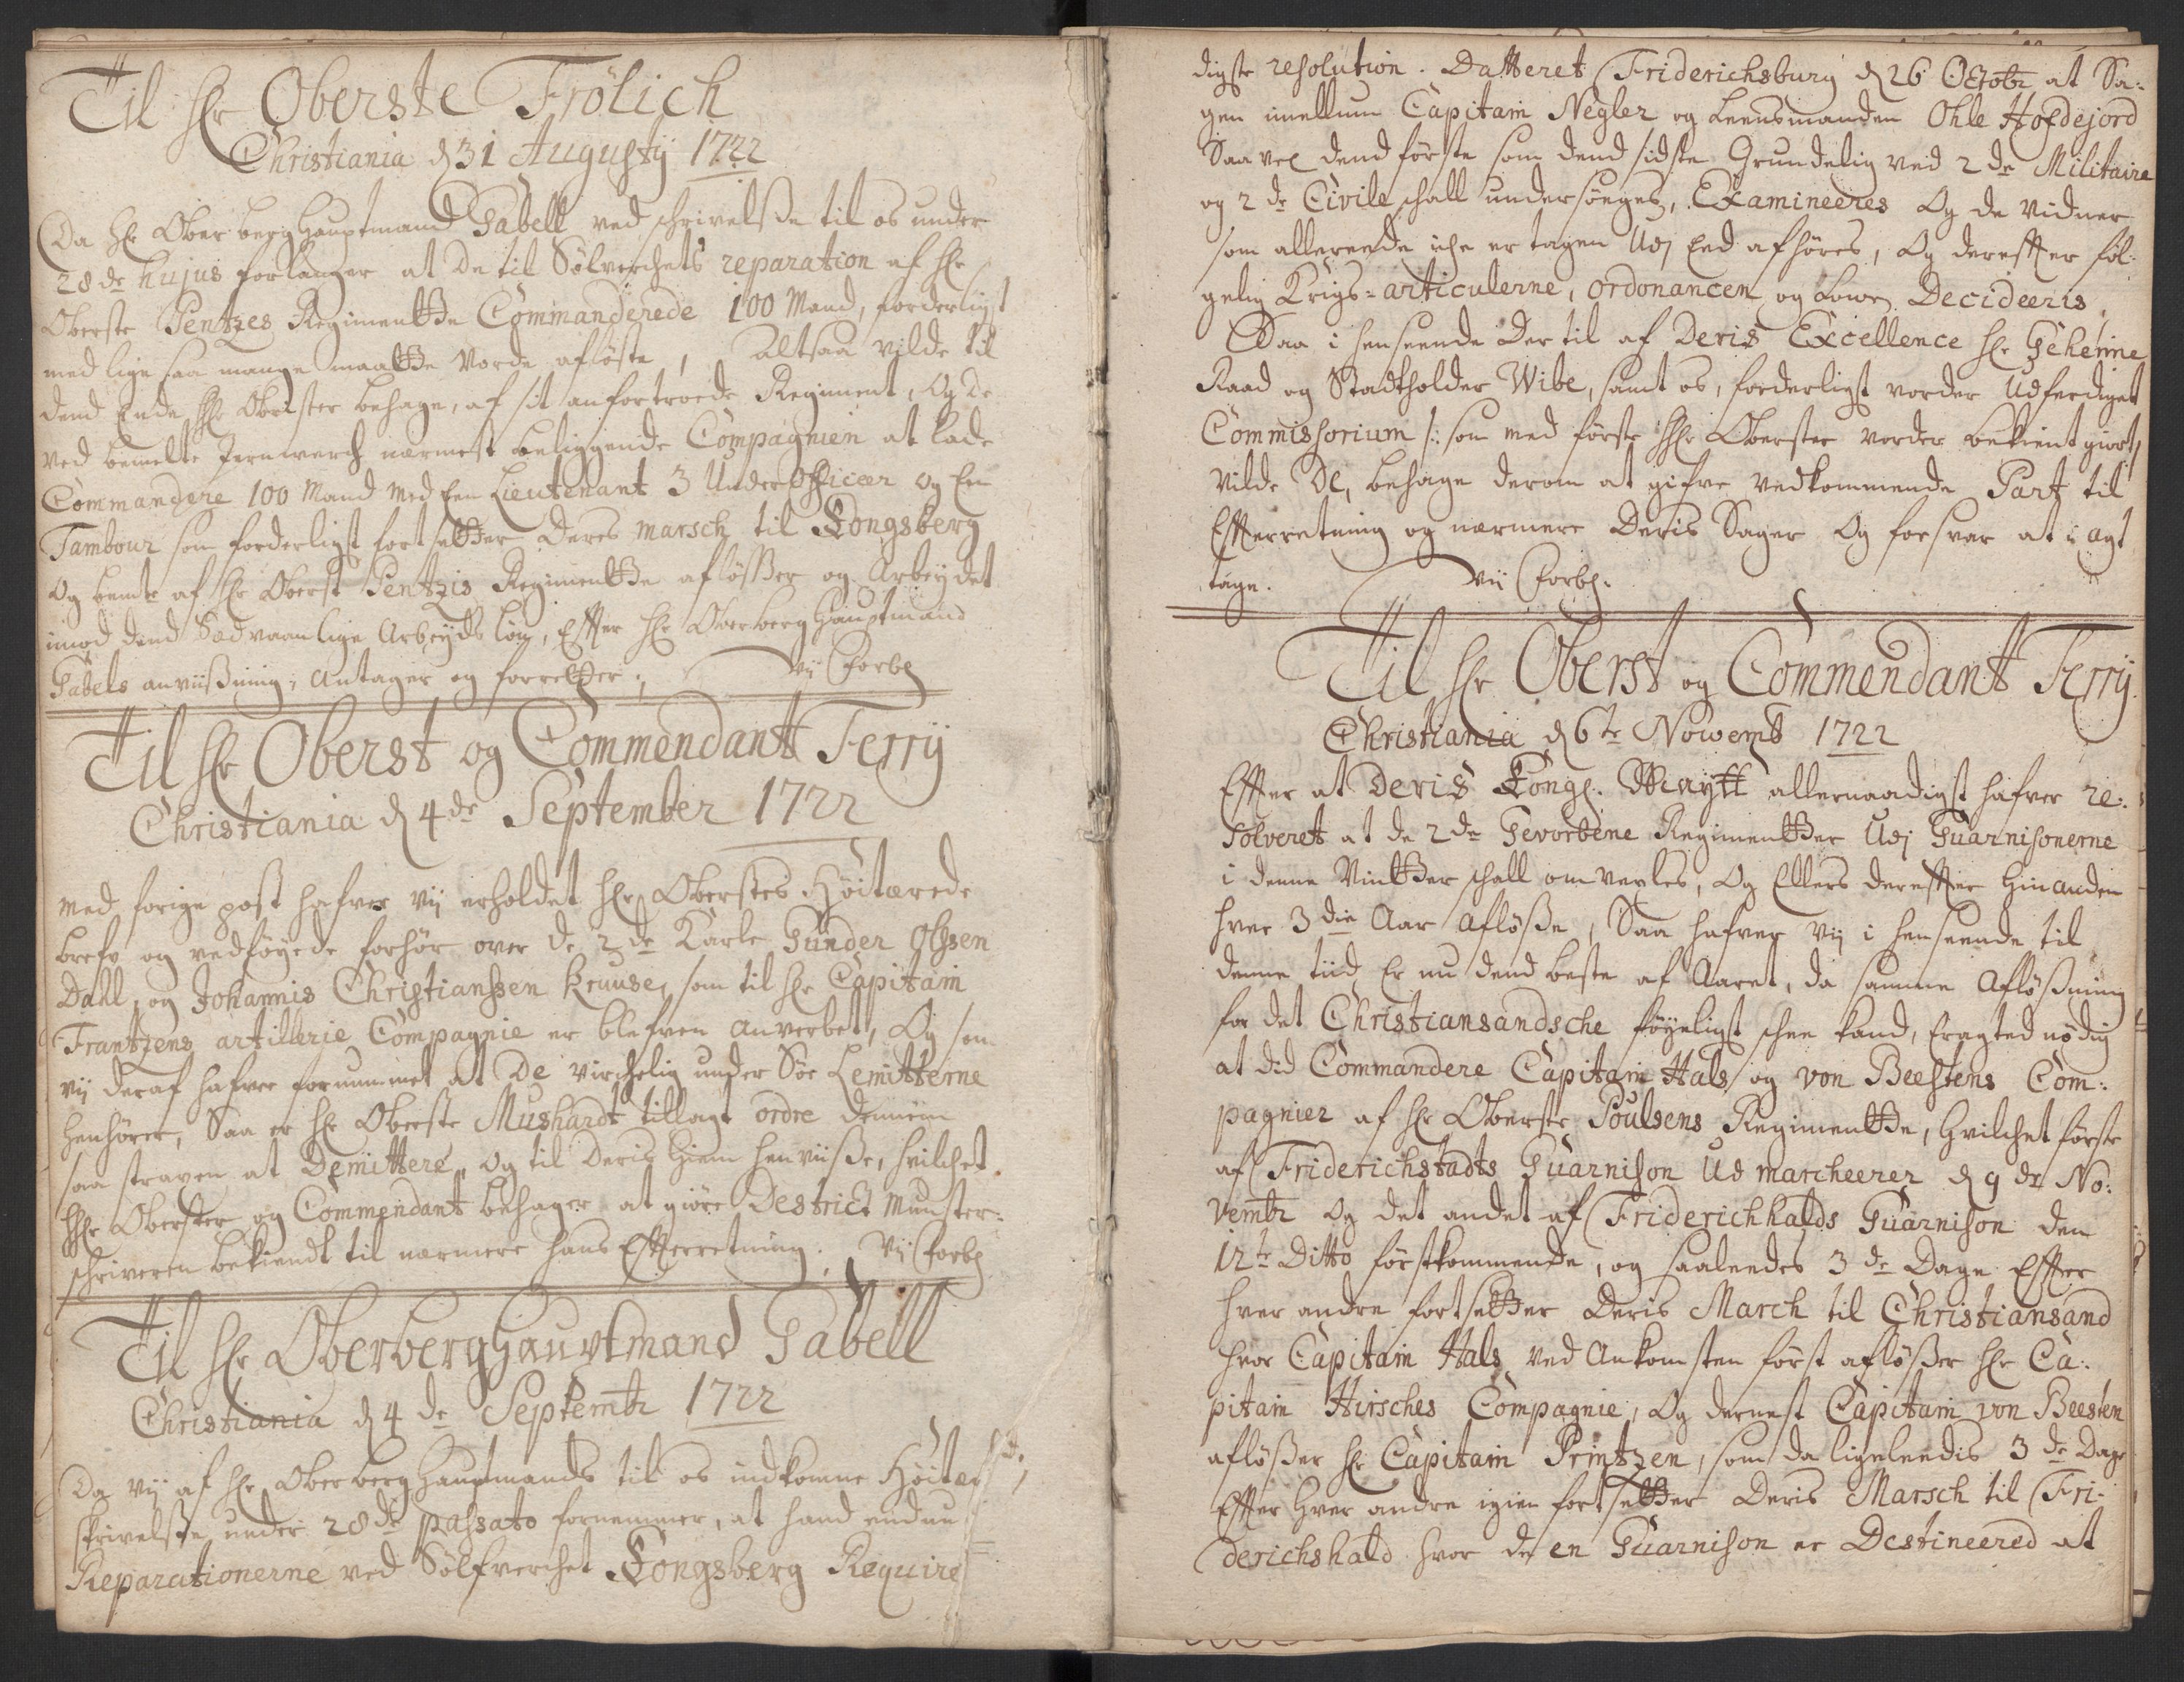 Til Hr Oberste Frölich
Christiania d 31 Augustij 1722
Da Hr Ober berg Hauptmand Gabell ved schrivelsse til os under
28de hujus forlanger at De til Sølverchets reparation af Hr
Oberste Pentzes Regimentte Commanderede 100 Mand, forderligst
med lige saa mange maatte vorde afløste, altsaa vilde til
dend Ende Hr Obrister behage, af sit anfortroede Regiment, Og de
ved bemelte Jernwerch nærmest beliggende Compagnien at lade
Commandere 100 Mand med Een Lieutenant 3 Under Officeer og Een
Tambour som forderligst fortsetter Deres marsch til Kongsberg
Og bemte af Hr Oberst Pentzis Regimentte afløsser og Arbeydet
imod dend Sædvaanlige Arbeyds løn, Effter Hr Oberberg Hauptmand
Gabels anviissning, Antager og forretter. Vij Forbl
Til Hr Oberst og Commendantt Ferrÿ
Christiania d 4de September 1722
Med forige post hafver vij erholdet Hr Oberstes Höitærede
bref og vedföyede forhör over de 2de Karle Gunder Olssen
Dahl, og Johannis Christianssen Kruuse, som til Hr Capitain
Frantzens artillerie Compagnie er blefven anverbet, Og som
vij deraf hafver fornummet at De virchelig under Söe Lemitterne
henhörer, Saa er Hr Oberste Mushardt tillagt ordre dennem
saa straxen at Demittere, Og til Deris hiem henviisse, hvilchet
Hr Oberster og Commendant behager at giöre Destrict Munster-
schriveren bekiendt til nærmere hans Effterretning. Vij Forbl
Til Hr Oberberghauptmand Gabell
Christiania d 4de Septembr 1722
Da vij af Hr Ober berg Hauptmands til os indkomne Höitær
skrivelsse under 28de passato fornemmer, at hand endnu
Reparationerne ved Sölfverchet Kongsberg Require
digste resolution. Datteret Friderichsburg d 26 Octobr at Sa-
gen imellum Capitain Negler og Leensmanden Ohle Hofdejord
Saavel dend förste som dend sidste Grundelig ved 2de Militaire
og 2de Civile schall undersöeges, Examineeres Og de Vidner
som allereede iche er tagen Udj Eed afhöres, Og dereffter föl-
gelig Krigs-articulerne, ordonancen og Lowen Decideeris
Saa i henseende Dertil af Deris Excellence Hr Geheime
Raad og Stadtholder Wibe, samt os, forderligst vorder Udferdiget
Commissorium /: som med förste Hr Oberster vorder bekient giort/
vilde De, behage derom at gifve vedkommende Part til
Effterretning og nærmere Deris Sager Og forsvar at i agt
tage. Vij Forbl.
Til Hr Oberst og Commendantt Ferrÿ.
Christiania d 6te Nowemb 1722
Effter at Deris Kongl. Maytt allernaadigst hafver re-
solveret at de 2de Gevorbene Regimentter Udj Guarnisonerne
i denne Vintter schall omvexles, Og Ellers dereffter hinanden
hver 3die Aar afløsse, Saa hafver vij i henseende til
denne tiid Er nu dend beste af Aaret, da samme Afløssning
for det Christiansandsche föyeligst schee kand, Eragted nödig
at did Commandere Capitain Hals og von Beestens Com-
pagnier af Hr Oberste Poulsens Regimentte, Hvilchet förste
af Friderichstadts Guarnison Ud marcheerer d 9de No-
vembr Og det andet af Friderichhalds Guarnison den
12te Ditto förstkommende, og saaleedes 3de Dage Effter
hver andre fortsetter Deris March til Christiansand
hvor Capitain Hals ved Ankomsten först afløsser Hr Ca-
pitain Hirsches Compagnie, Og dernest Capitain von Beesten
afløsser Hr Capitain Printzen, som da ligeleedis 3de Dage
Effter hver andre igien fortsetter Deris Marsch til Fri-
derichshald hvor de en Guarnison er Destineered at